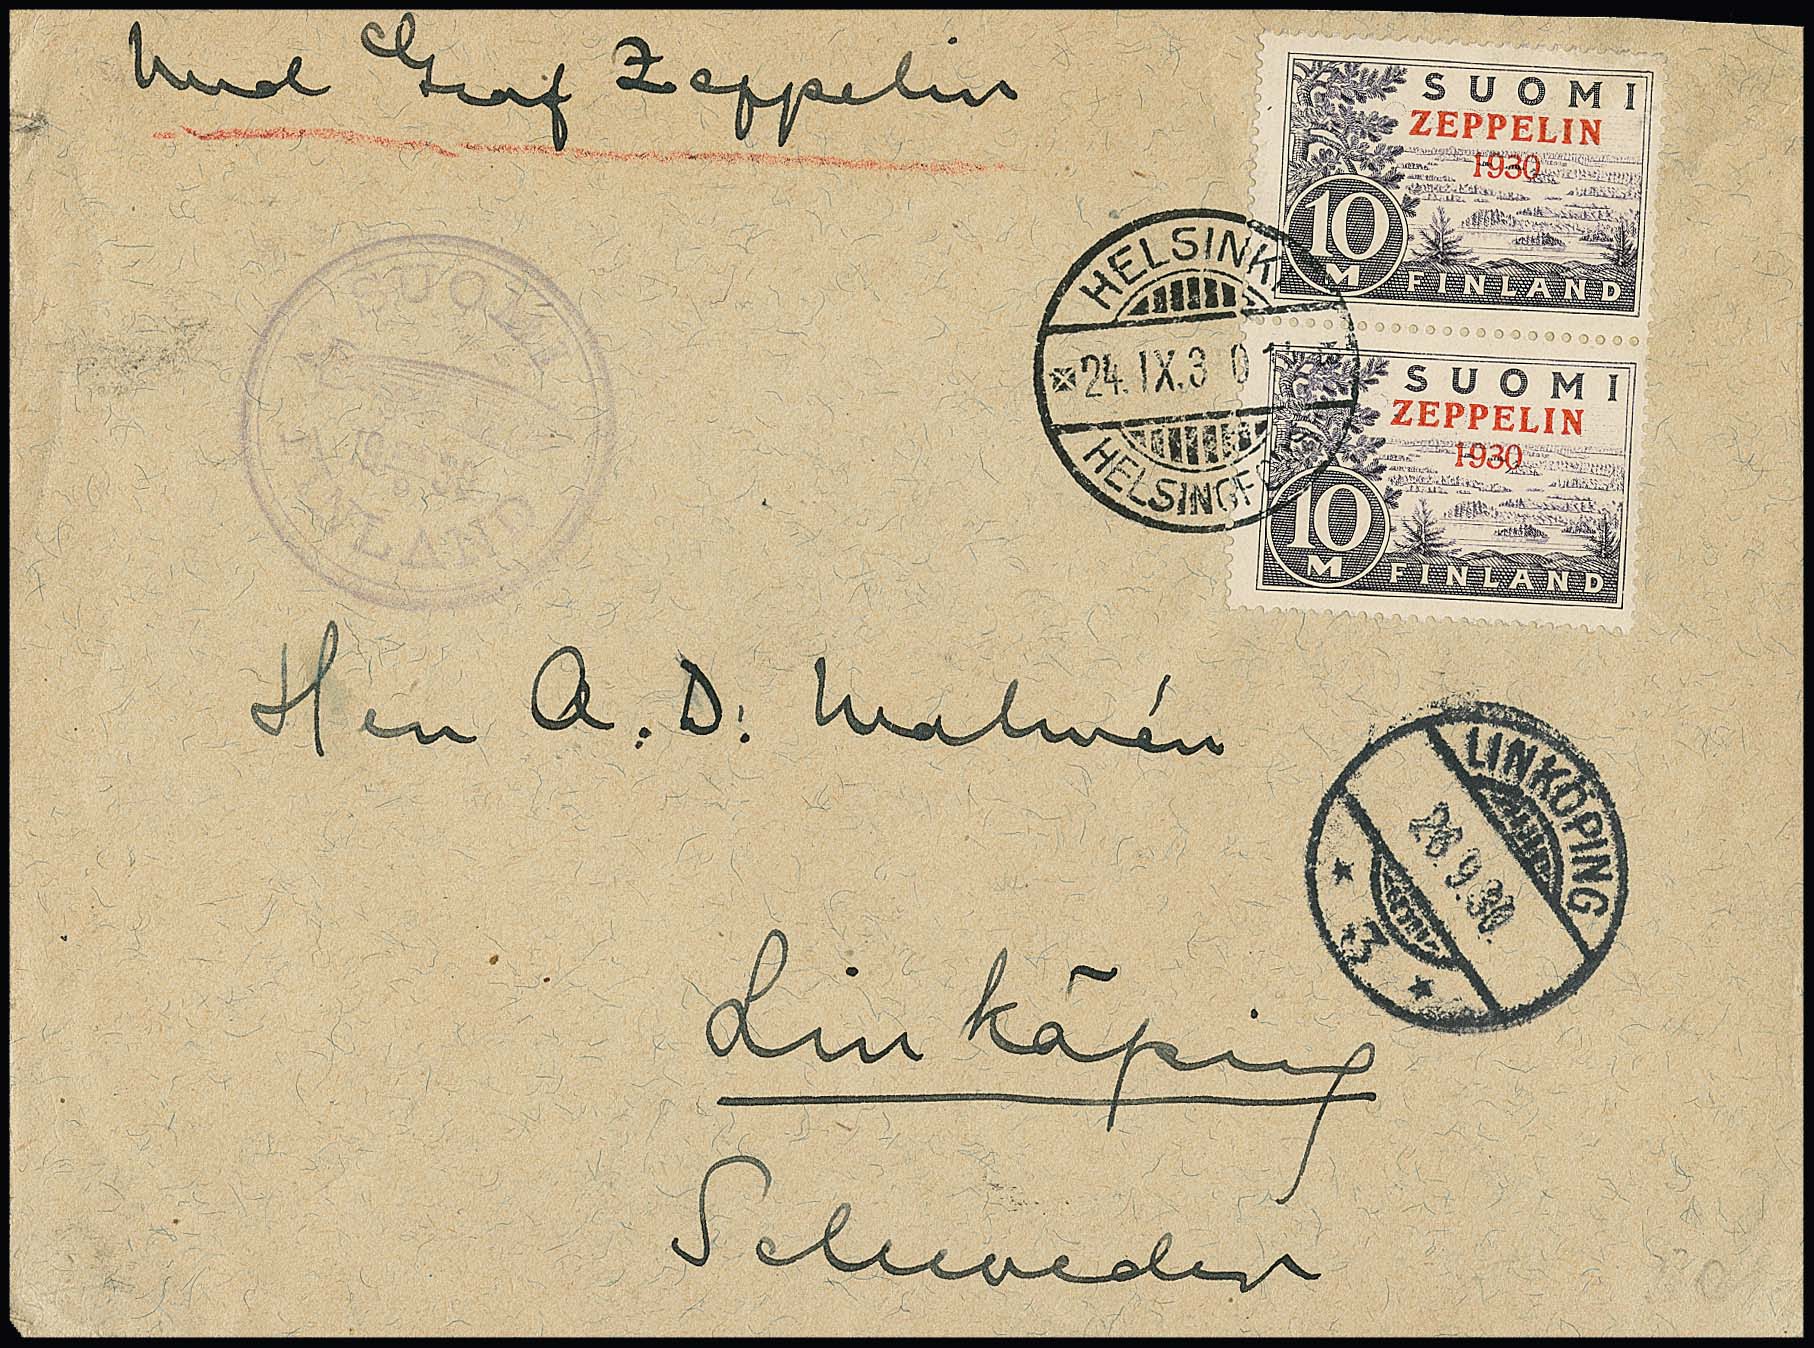 Med Graf Zeppelin
SUOMI
ZEPPELIN
1930
10
M
FINLAND
SUOMI
ZEPPELIN
1930
10
M
FINLAND
HELSINKI
24.IX.30
HELSINGFO
SUOMI
FINLAND
Herr A. D. Malmén
LINKÖPING
26.9.30.
3
Linköping
Schweden